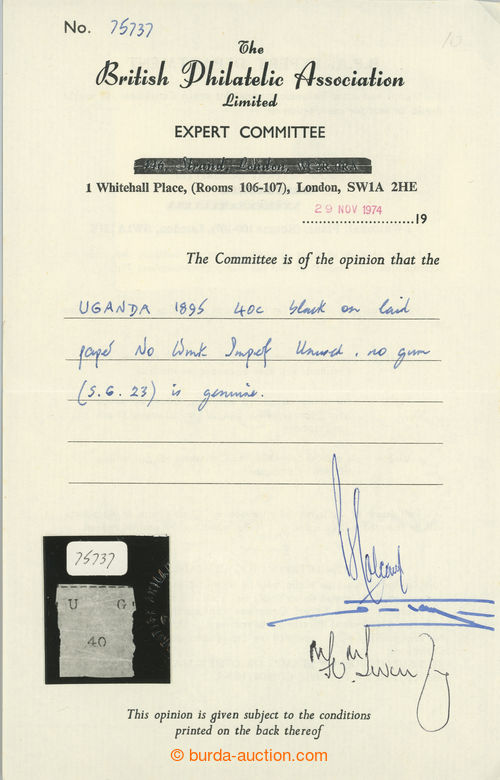 No. 75737
10
The
British Philatelic Association
Limited
EXPERT COMMITTEE
446, Strand, London, WC2R 0RA
1 Whitehall Place, (Rooms 106-107), London, SW1A 2HE
29 NOV 1974
19
The Committee is of the opinion that the
UGANDA 1895 40c black on laid
paper No Wmk Imperf Unused. no gum
(S.G. 23) is genuine.
75737
U G
40
This opinion is given subject to the conditions
printed on the back thereof
© burda-auction.com